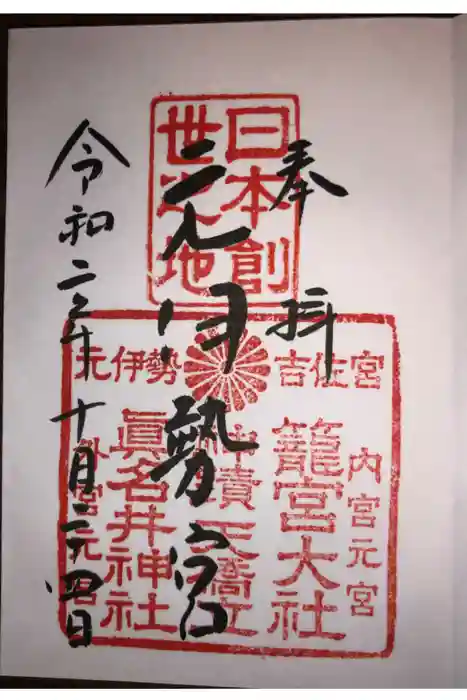 奉拝
元伊勢宮
令和二年十月二十四日
日本創
世之地
元伊勢
吉佐宮
内宮元宮
籠宮大社
天橋立
眞名井神社
外宮元宮